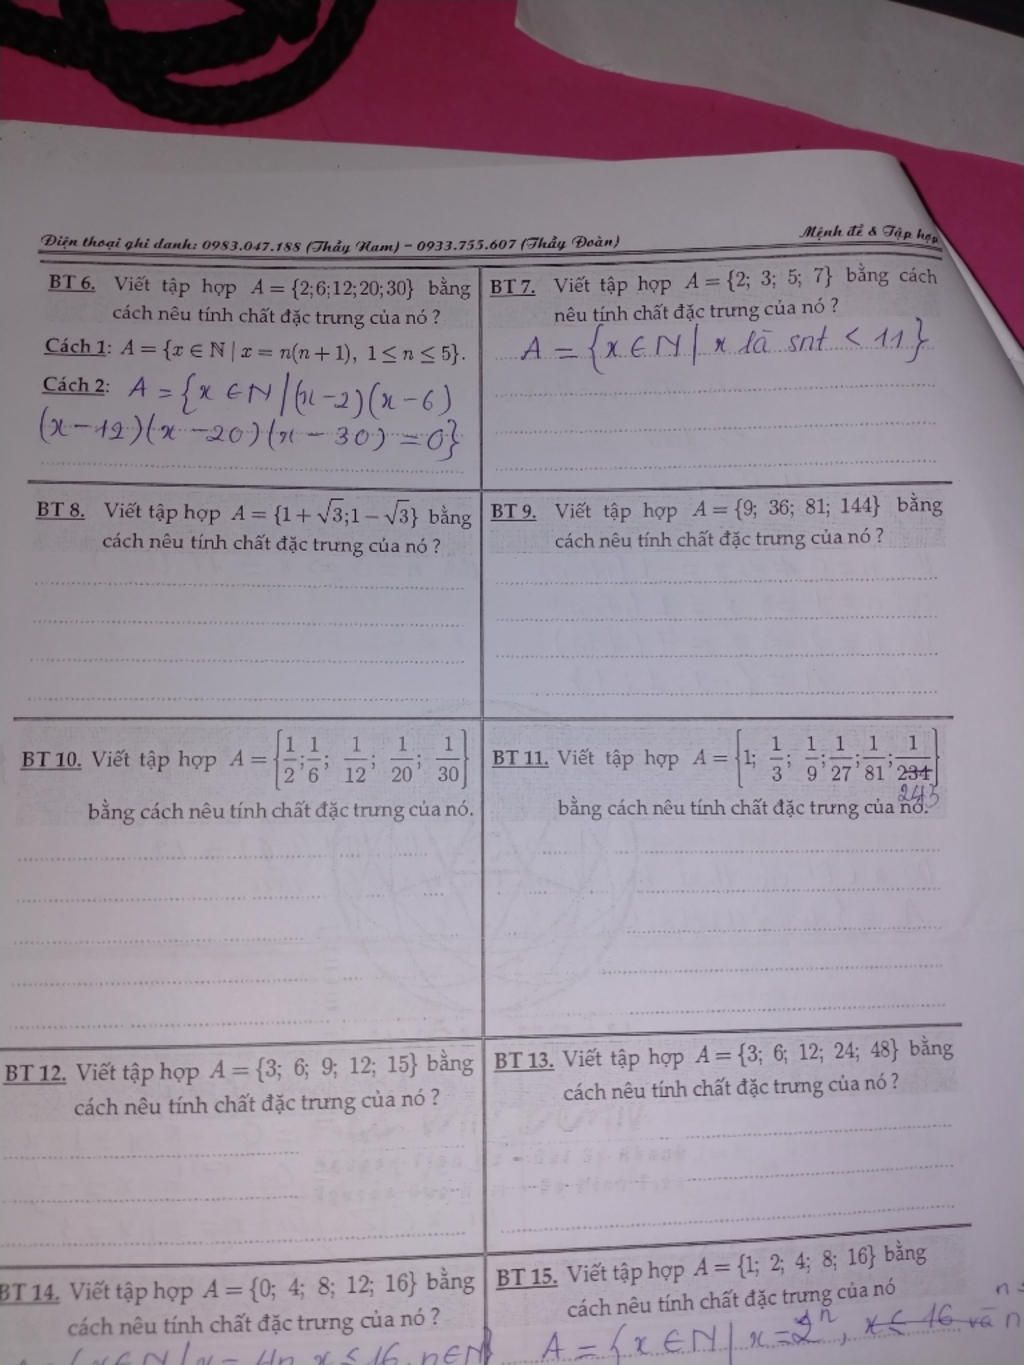 Điện thoại ghi danh: 0983.047.188 (Thầy Nam) – 0933.755.607 (Thầy Đoàn)
Mệnh đề & Tập hợp
BT 6. Viết tập hợp A = {2;6;12;20;30} bằng
cách nêu tính chất đặc trưng của nó ?
Cách 1: A = {x ∈ ℕ | x = n(n+1), 1 ≤ n ≤ 5}.
Cách 2: A = {x ∈ N / (x-2)(x-6)
(x-12)(x-20)(x-30) = 0}
BT 7. Viết tập hợp A = {2; 3; 5; 7} bằng cách
nêu tính chất đặc trưng của nó ?
A = {x ∈ N / x là snt < 11}
BT 8. Viết tập hợp A = {1+√3;1−√3} bằng
cách nêu tính chất đặc trưng của nó ?
BT 9. Viết tập hợp A = {9; 36; 81; 144} bằng
cách nêu tính chất đặc trưng của nó ?
BT 10. Viết tập hợp A = {1/2; 1/6; 1/12; 1/20; 1/30}
bằng cách nêu tính chất đặc trưng của nó.
BT 11. Viết tập hợp A = {1; 1/3; 1/9; 1/27; 1/81; 1/234}
243
bằng cách nêu tính chất đặc trưng của nó.
BT 12. Viết tập hợp A = {3; 6; 9; 12; 15} bằng
cách nêu tính chất đặc trưng của nó ?
BT 13. Viết tập hợp A = {3; 6; 12; 24; 48} bằng
cách nêu tính chất đặc trưng của nó ?
BT 14. Viết tập hợp A = {0; 4; 8; 12; 16} bằng
cách nêu tính chất đặc trưng của nó ?
A = {x ∈ N / x = 4n, x ≤ 16, n ∈ N}
BT 15. Viết tập hợp A = {1; 2; 4; 8; 16} bằng
cách nêu tính chất đặc trưng của nó
A = {x ∈ N / x = 2ⁿ, x ≤ 16 và n